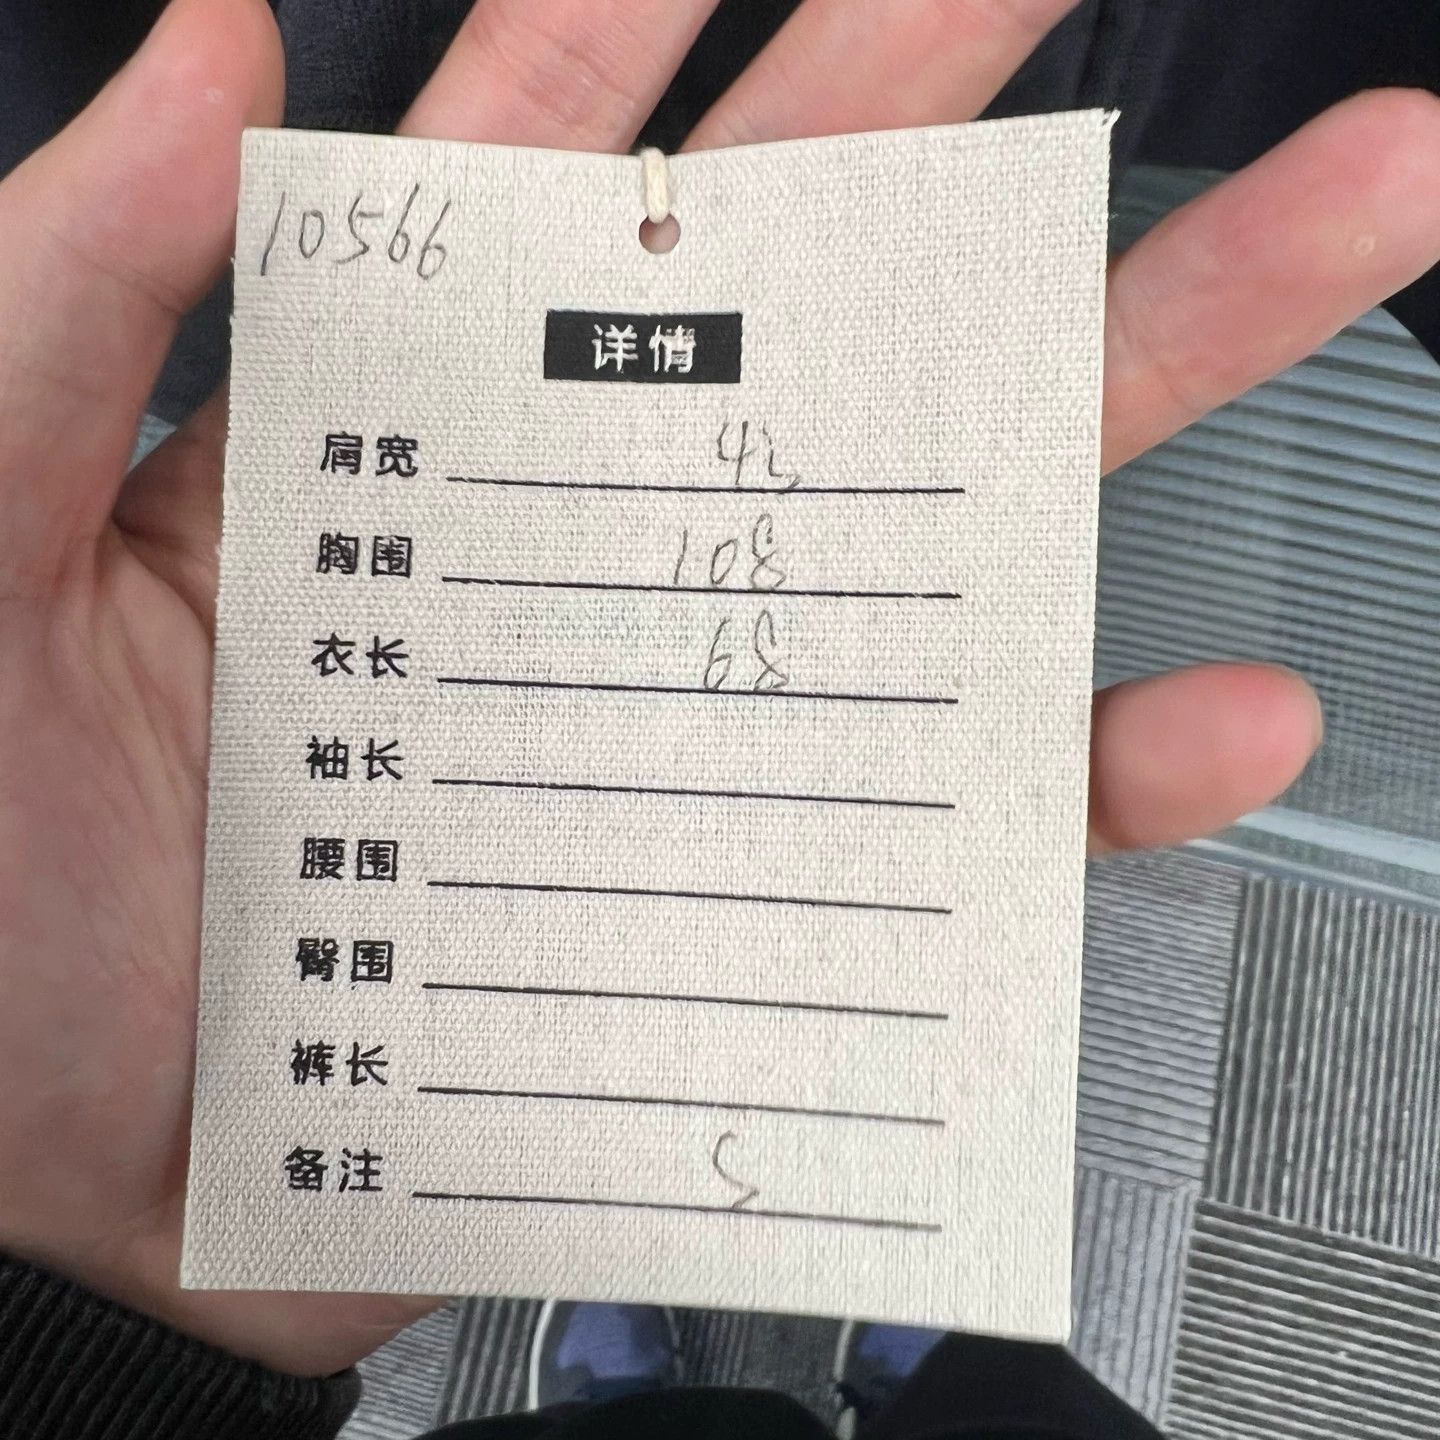 10566
详情
肩宽 42
胸围 108
衣长 68
袖长
腰围
臀围
裤长
备注 S